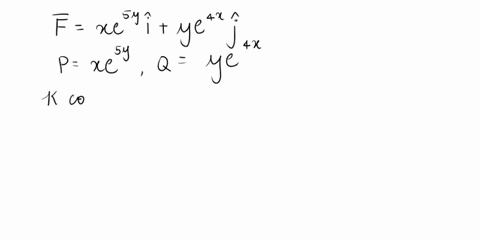 F̅ = xe^{5y} î + ye^{4x} ĵ
P = xe^{5y} , Q = ye^{4x}
K co